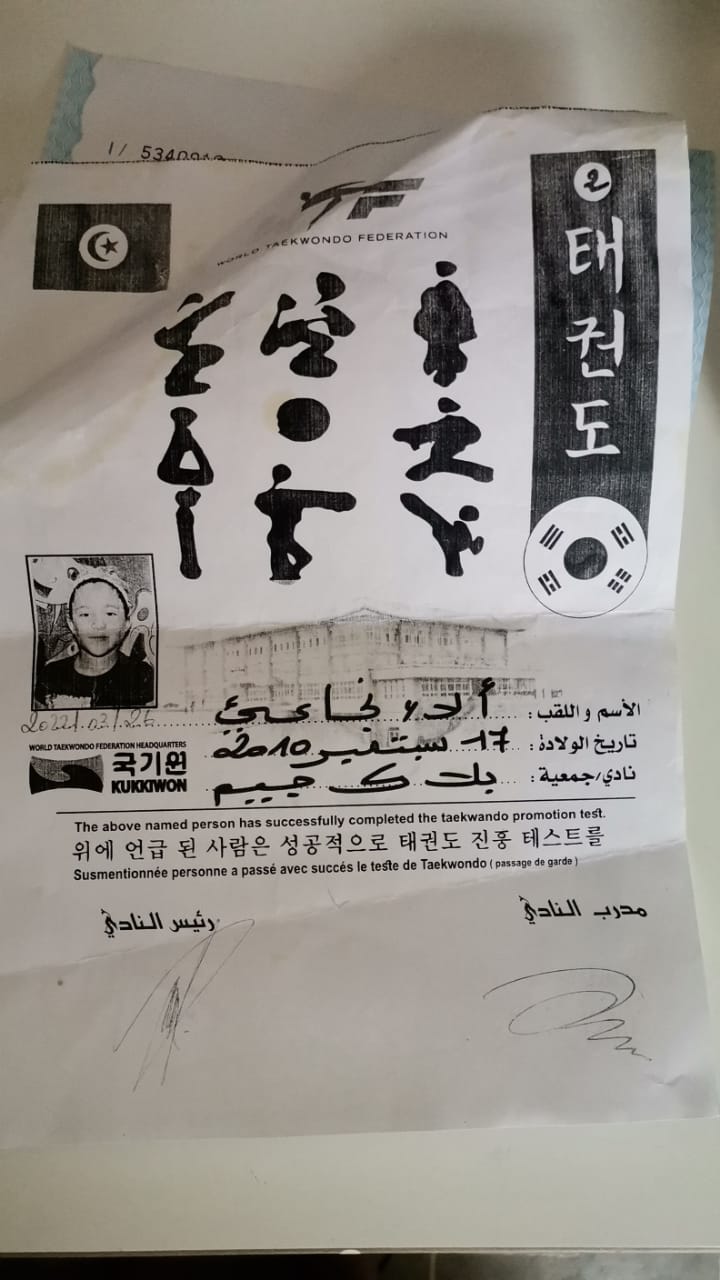 2
태권도
WORLD TAEKWONDO FEDERATION
الأسم و اللقب:
2022/03/26
تاريخ الولادة: 17 سبتمبر 2010
نادي/جمعية: جييم
WORLD TAEKWONDO FEDERATION HEADQUARTERS
국기원
KUKKIWON
The above named person has successfully completed the taekwando promotion test.
위에 언급 된 사람은 성공적으로 태권도 진흥 테스트를
Susmentionnée personne a passé avec succés le teste de Taekwondo ( passage de garde )
مدرب النادي
رئيس النادي